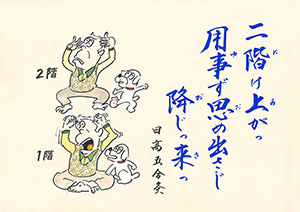 二階け上がっ
用事ず思の出さじ
降じっ来っ
日高五合灸
2階
1階